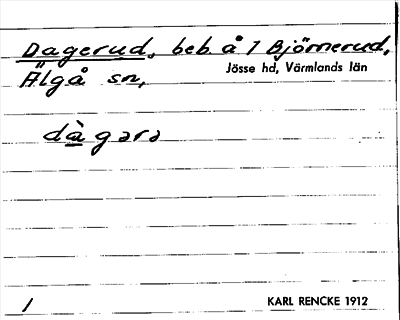 Dagerud, beb. å 1 Björnerud,
Jösse hd, Värmlands län
Älgå sn,
dàgərə
1
KARL RENCKE 1912